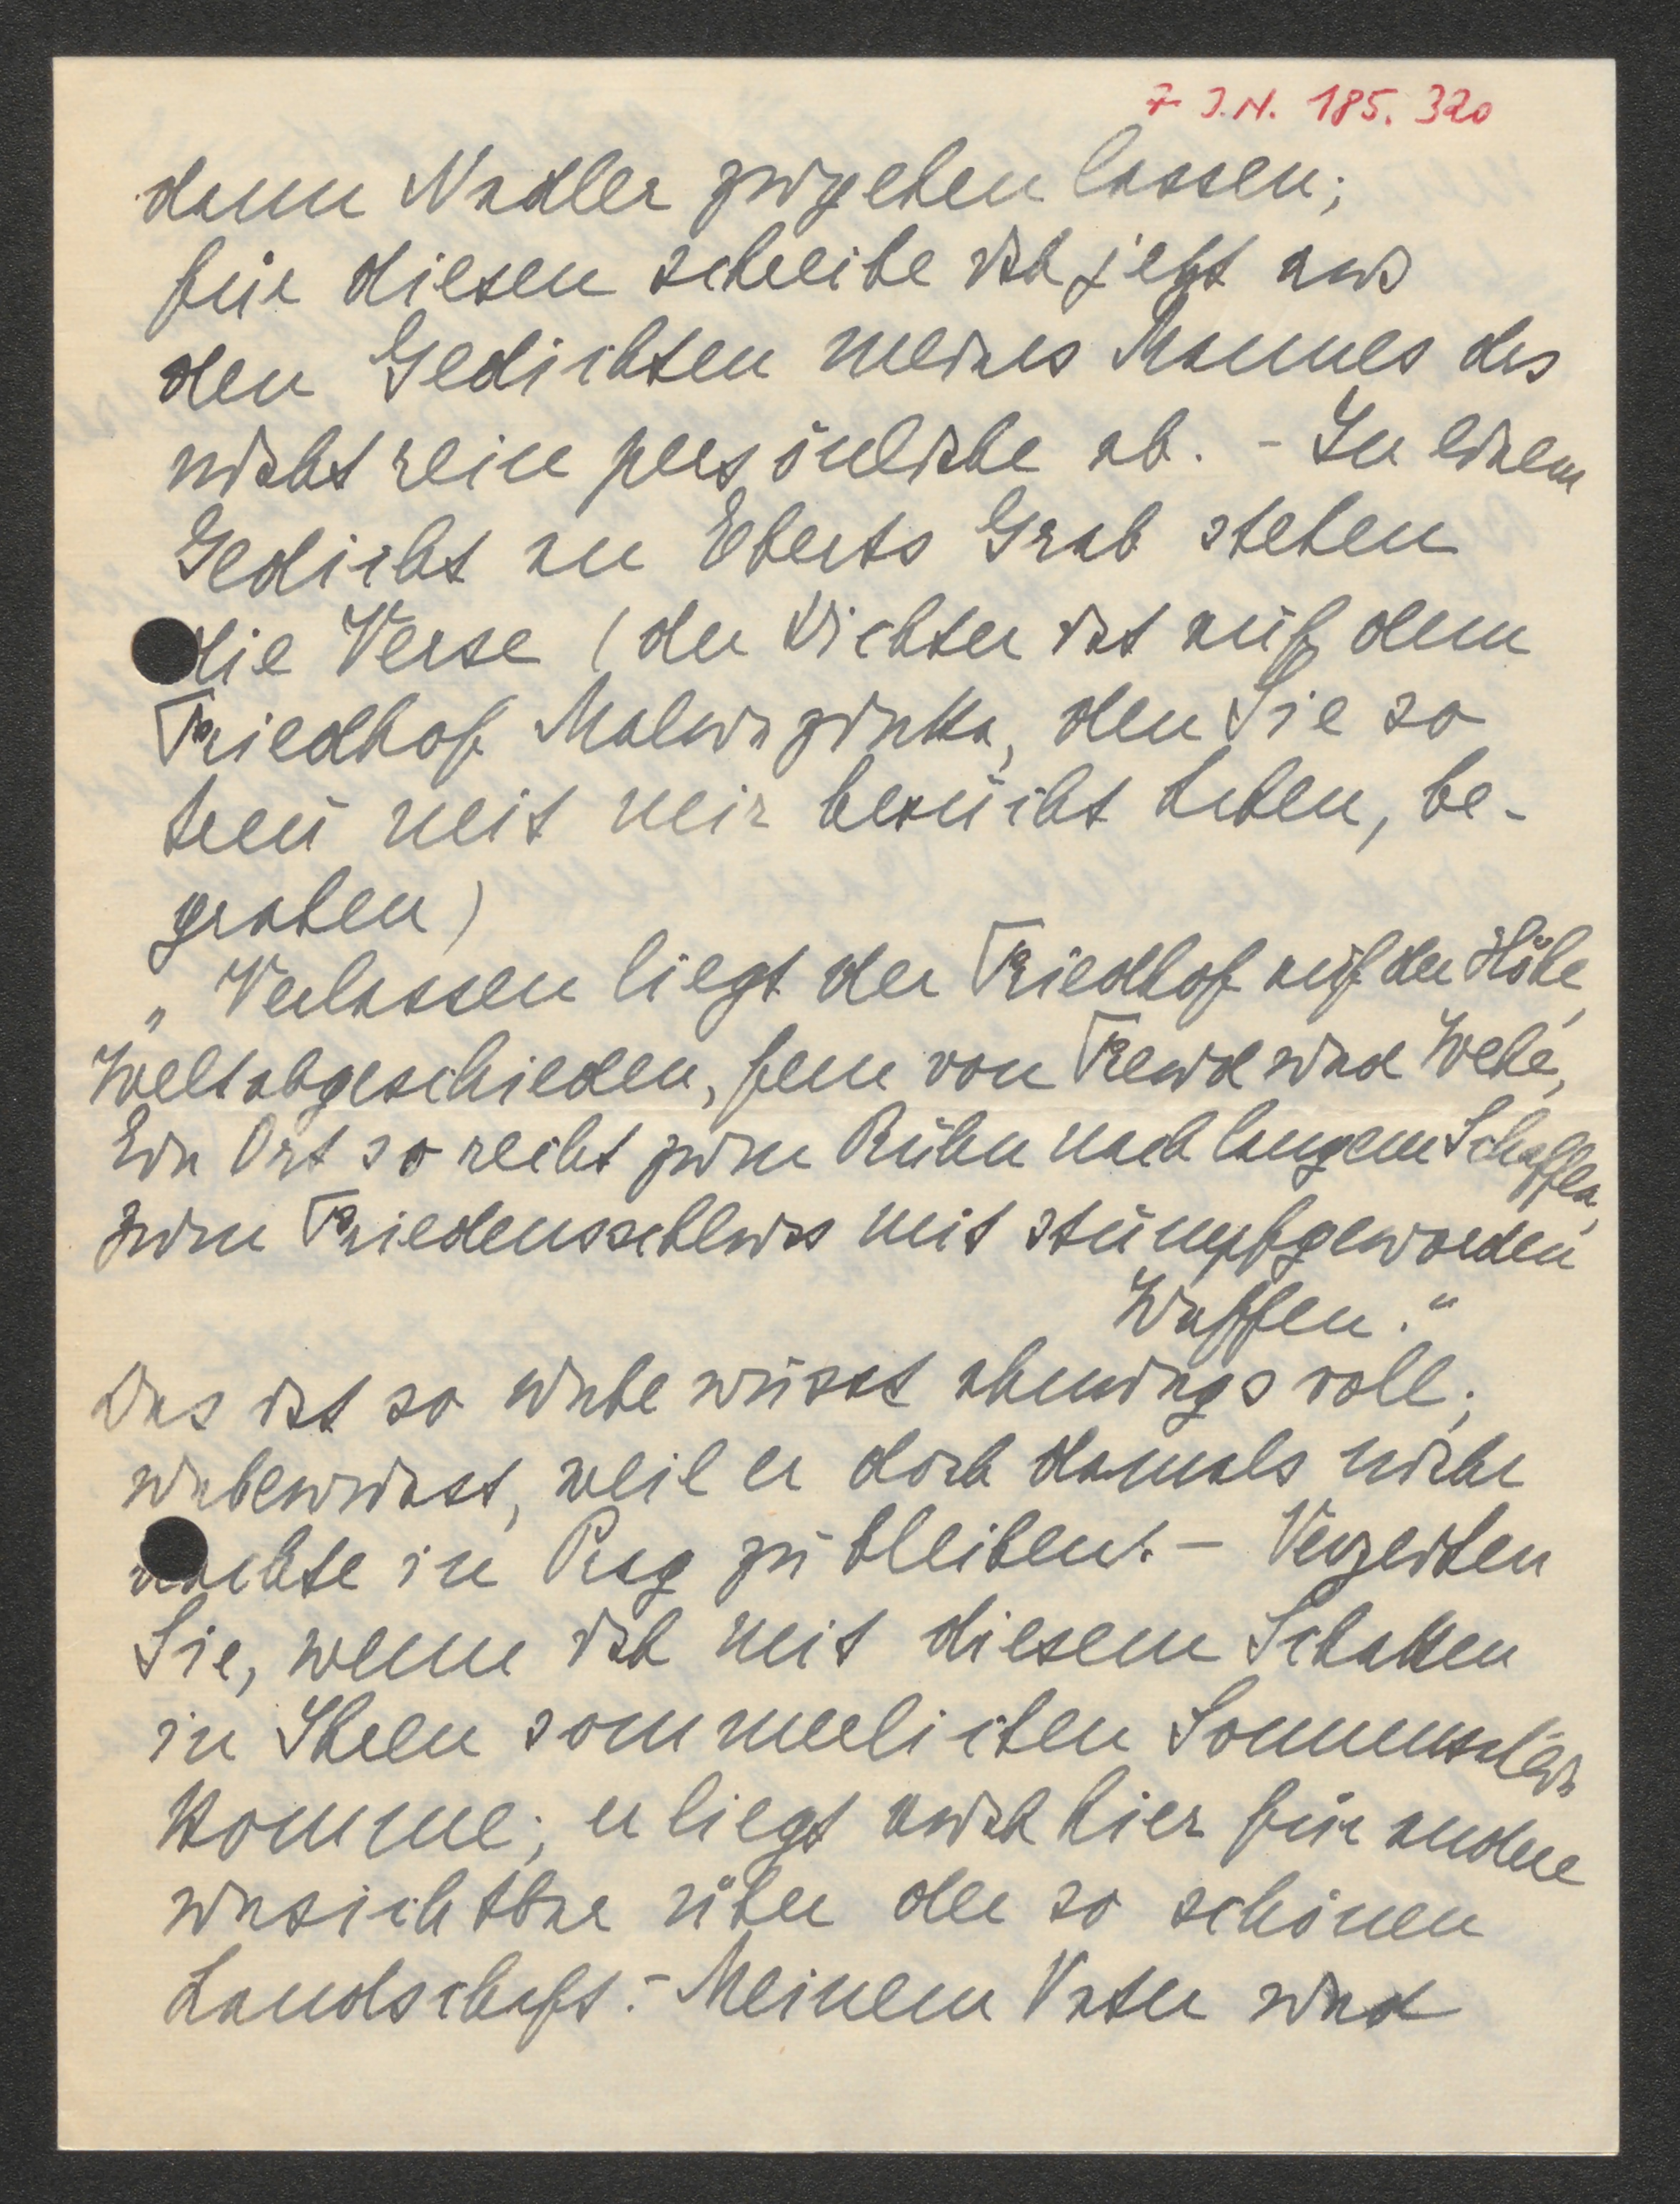 I.N. 185.320
dann Nadler zugehen lassen;
für diesen schreibe ich jetzt aus
den Gedichten meines Mannes das
nicht rein persönliche ab. - In einem
Gedicht an Eberts Grab stehen
die Verse (der Dichter ist auf dem
Friedhof Malvazinka, den Sie so
treu mit mir besucht haben, be-
graben)
„Verlassen liegt der Friedhof auf der Höhe,
Weltabgeschieden, fern von Freud und Wehe,
Ein Ort so recht zum Ruhn nach langem Schaffen,
Zum Friedensschluss mit stumpfgeworden
Waffen."
Das ist so unbewusst ahnungsvoll;
unbewusst, weil er doch damals nicht
dachte in Prag zu bleiben. - Verzeihen
Sie, wenn ich mit diesem Schatten
in Ihren sommerlichen Sonnenschein
komme; er liegt auch hier für andere
unsichtbar über der so schönen
Landschaft. - Meinem Vater und